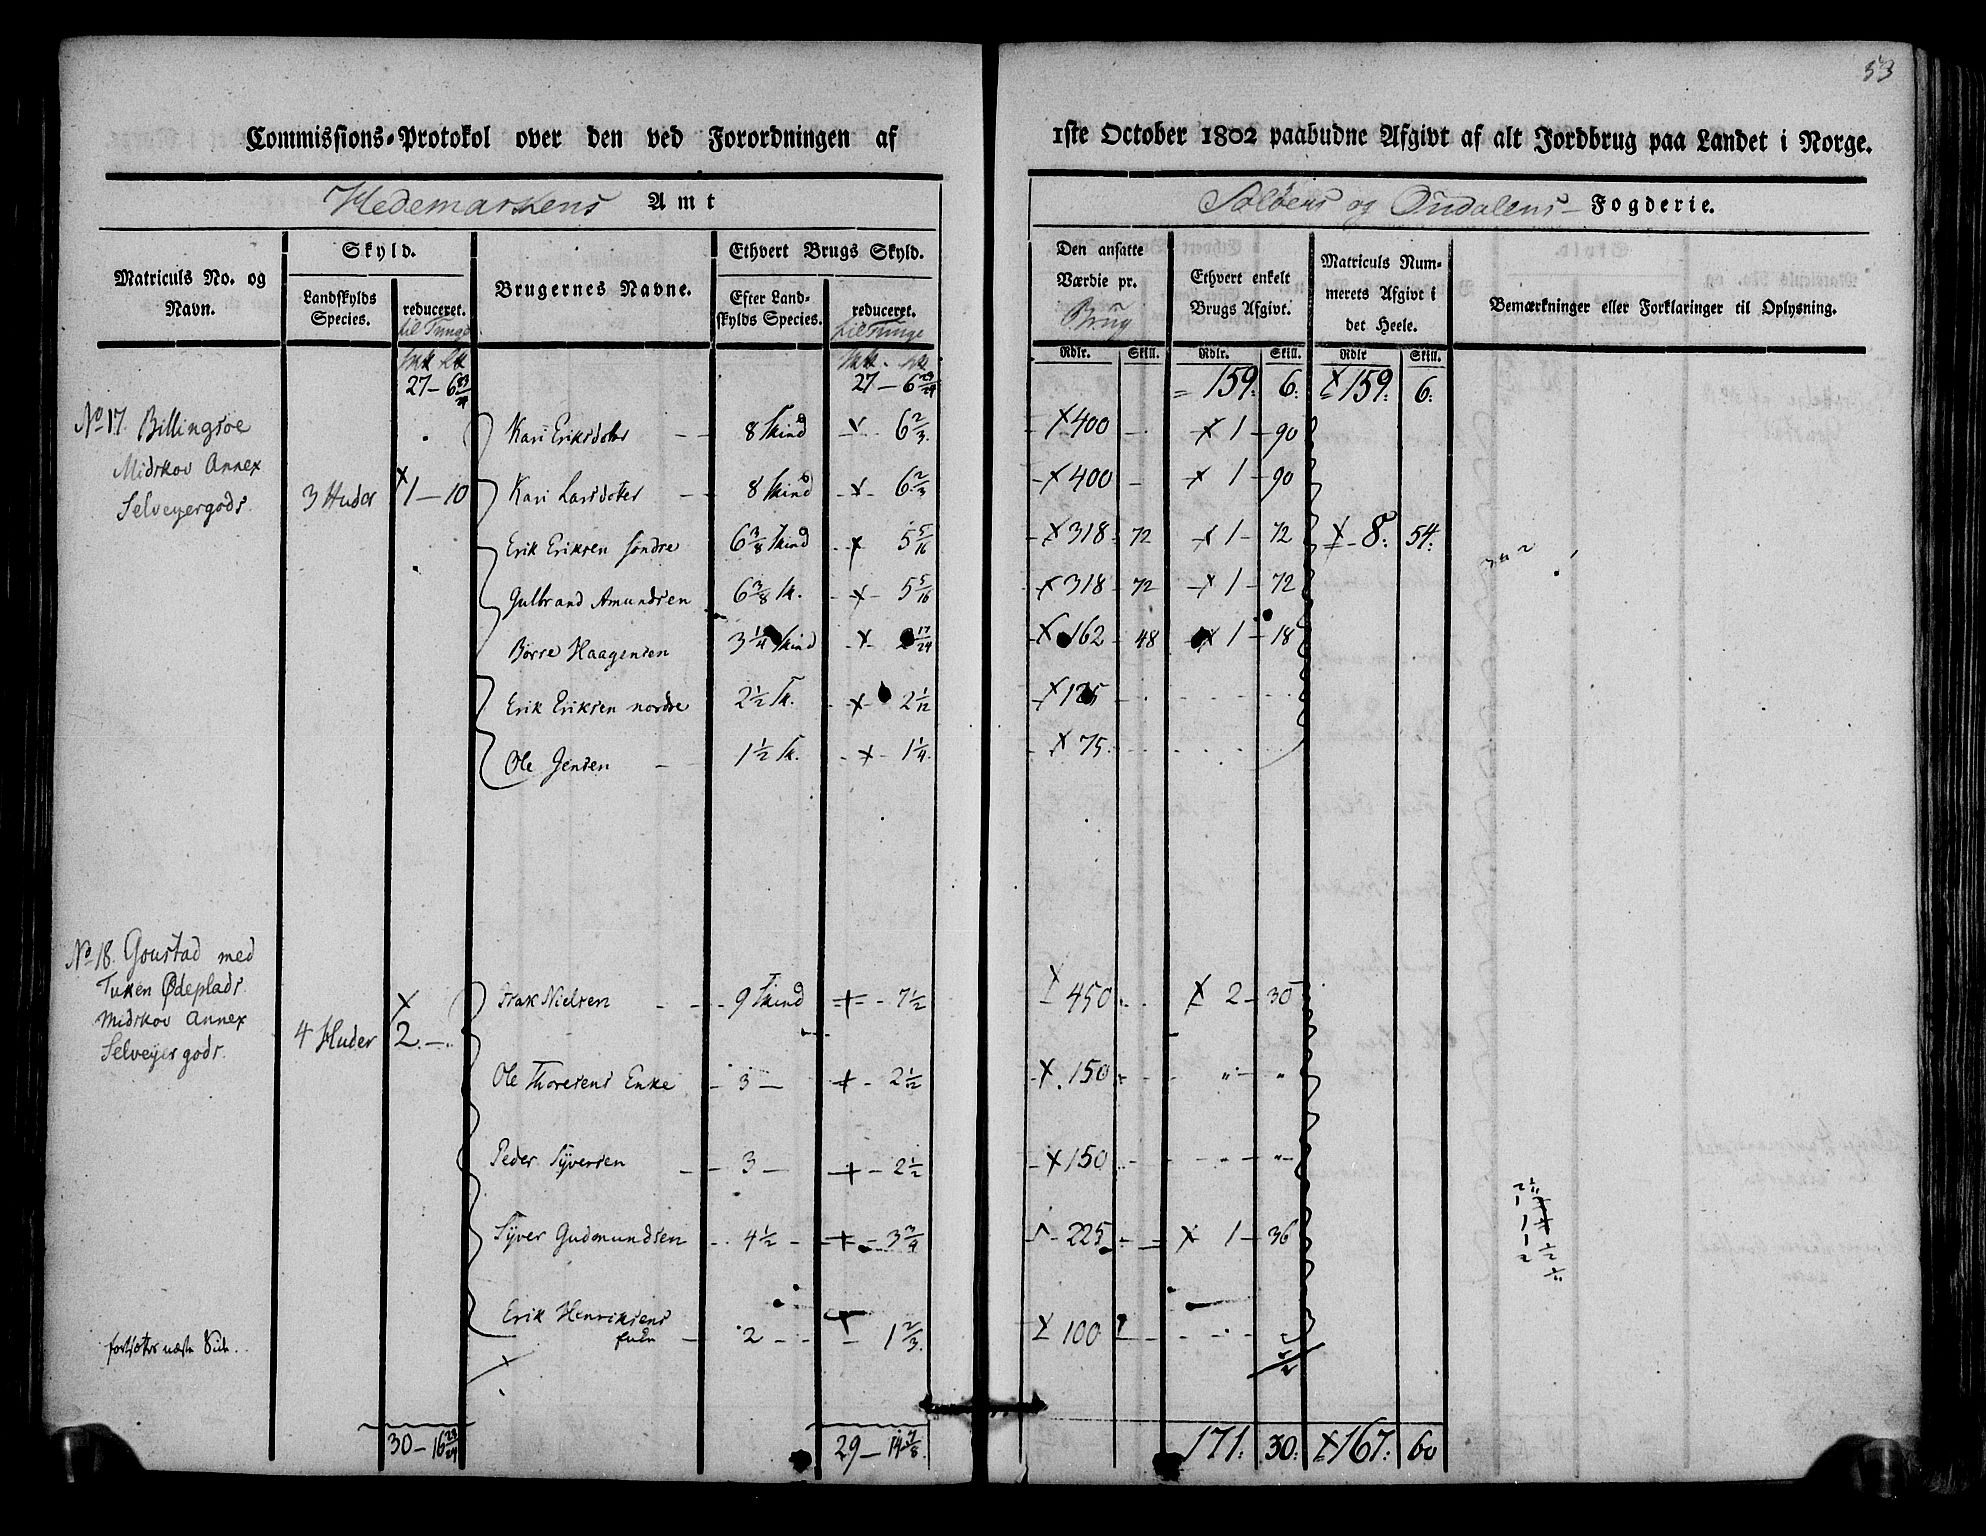 53
Commissions-Protokol over den ved Forordningen af 1ste October 1802 paabudne Afgivt af alt Jordbrug paa Landet i Norge.
Hedemarkens Amt
Soløens og Oudalens Fogderie.
Matriculs No. og Navn.
Skyld.
Landskylds Species.
reduceret. til Tunge
Brugernes Navne.
Ethvert Brugs Skyld.
Efter Landskylds Species.
reduceret. til Tunge
Den ansatte Værdie pr. Brug
Ethvert enkelt Brugs Afgivt.
Matriculs Nummerets Afgivt i det Heele.
Bemærkninger eller Forklaringer til Oplysning.
Rdlr. Skill. Rdlr. Skill. Rdlr Skill.
27 – 6 23/24 27 – 6 23/24 159. 6. 159. 6.
No 17 Billingsoe
Midskov Annex
Selveyergods.
3 Huder 1 – 10
Kari Eriksdoter 8 Skind 6 2/3. 400 1 – 90
Kari Larsdoter 8 Skind 6 2/3 400 1 – 90
Erik Eriksen Søndre 6 3/8 Skind 5 5/16 318 72 1 – 72 8. 54.
Gulbrand Amundsen 6 3/8 Sk. 5 5/16 318 72 1 – 72
Børre Haagensen 3 1/4 Skind 2 17/24 162 48 1 – 18
Erik Eriksen nordre 2 1/2 Sk. 2 1/12 125
Ole Jensen 1 1/2 Sk. 1 1/4. 75.
No 18. Goustad med
Tuken Ødeplads
Midskov Annex
Selveyergods.
4 Huder 2. –
Isak Nielsen 9 Skind 7 1/2 450 2 – 30
Ole Thoresens Enke 3 – 2 1/2 150
Peder Syversen 3 – 2 1/2 150
Syver Gudmundsen 4 1/2 3 3/4 225 1 – 36
Erik Henriksens
Enke 2 1 2/3. 100
fortsættes næste Side.
30 – 16 23/24 29 – 14 7/8. 171. 30. 167. 60